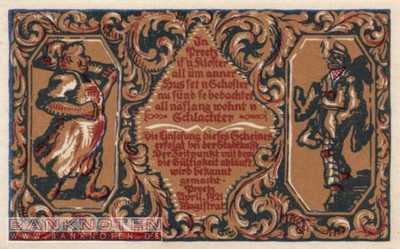 In
Preetz
is'n Kloster
all üm anner
Hus set'n Schoster
nu sünd se bedachter
all naslang wohnt'n
Schlachter
Die Einlösung dieses Scheines
erfolgt bei der Stadtkasse
Der Zeitpunkt mit dem
die Gültigkeit abläuft
wird bekannt
gemacht
Preetz
April 1921
Magistrat
BANKNOTEN
WWW.BANKNOTEN.DE